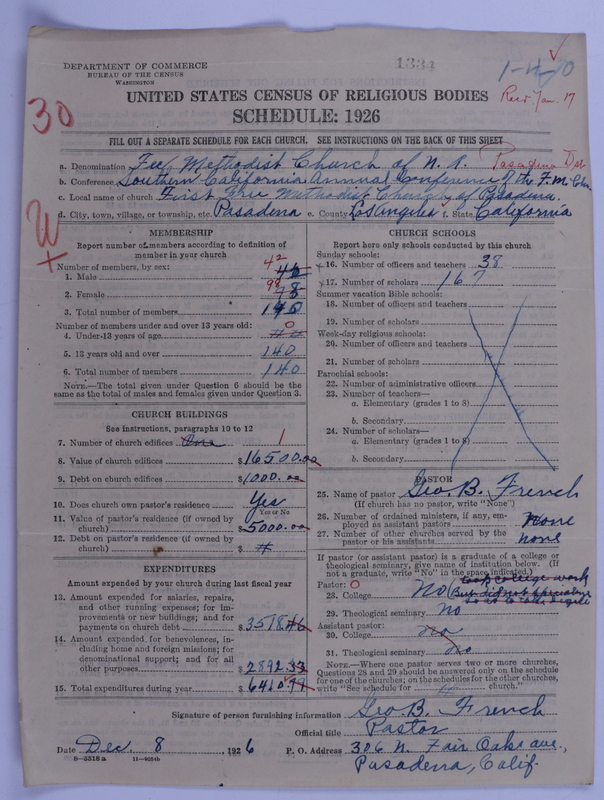 1334
1-14-70
DEPARTMENT OF COMMERCE
BUREAU OF THE CENSUS
WASHINGTON
UNITED STATES CENSUS OF RELIGIOUS BODIES
Rec'd Jan. 17
SCHEDULE: 1926
30
FILL OUT A SEPARATE SCHEDULE FOR EACH CHURCH. SEE INSTRUCTIONS ON THE BACK OF THIS SHEET
a. Denomination Free Methodist Church of N. A. Pasadena Dist
b. Conference Southern California Annual Conference of the F. M. Chu
c. Local name of church First Free Methodist Church of Pasadena.
d. City, town, village, or township, etc. Pasadena e. County Los Angeles f. State California
MEMBERSHIP
Report number of members according to definition of
member in your church
Number of members, by sex:
1. Male 42
2. Female 98
3. Total number of members 140
Number of members under and over 13 years old:
4. Under 13 years of age 0
5. 13 years old and over 140
6. Total number of members 140
NOTE.—The total given under Question 6 should be the
same as the total of males and females given under Question 3.
CHURCH BUILDINGS
See instructions, paragraphs 10 to 12
7. Number of church edifices One 1
8. Value of church edifices $16500.00
9. Debt on church edifices $1000.00
10. Does church own pastor's residence? Yes
Yes or No
11. Value of pastor's residence (if owned by
church) $5000.00
12. Debt on pastor's residence (if owned by
church) $
EXPENDITURES
Amount expended by your church during last fiscal year
13. Amount expended for salaries, repairs,
and other running expenses; for im-
provements or new buildings; and for
payments on church debt $3518.46
14. Amount expended for benevolences, in-
cluding home and foreign missions; for
denominational support; and for all
other purposes $2892.33
15. Total expenditures during year $6410.79
CHURCH SCHOOLS
Report here only schools conducted by this church
Sunday schools:
16. Number of officers and teachers 38
17. Number of scholars 167
Summer vacation Bible schools:
18. Number of officers and teachers
19. Number of scholars
Week-day religious schools:
20. Number of officers and teachers
21. Number of scholars
Parochial schools:
22. Number of administrative officers
23. Number of teachers—
a. Elementary (grades 1 to 8)
b. Secondary
24. Number of scholars—
a. Elementary (grades 1 to 8)
b. Secondary
PASTOR
25. Name of pastor Geo. B. French
(If church has no pastor, write "None")
26. Number of ordained ministers, if any, em-
ployed as assistant pastors None
27. Number of other churches served by the
pastor or his assistants none
If pastor (or assistant pastor) is a graduate of a college or
theological seminary, give name of institution below. (If
not a graduate, write "No" in the space indicated.)
Pastor: 0
28. College No (took college work
But did not specialize
so as to take degree
29. Theological seminary No
Assistant pastor:
30. College no
31. Theological seminary No
NOTE.—Where one pastor serves two or more churches,
Questions 28 and 29 should be answered only on the schedule
for one of the churches; on the schedules for the other churches,
write "See schedule for church."
Signature of person furnishing information Geo. B. French
Official title Pastor
Date Dec. 8 1926 P. O. Address 306 N. Fair Oaks ave.,
Pasadena, Calif.
8-5318a 11-9084b